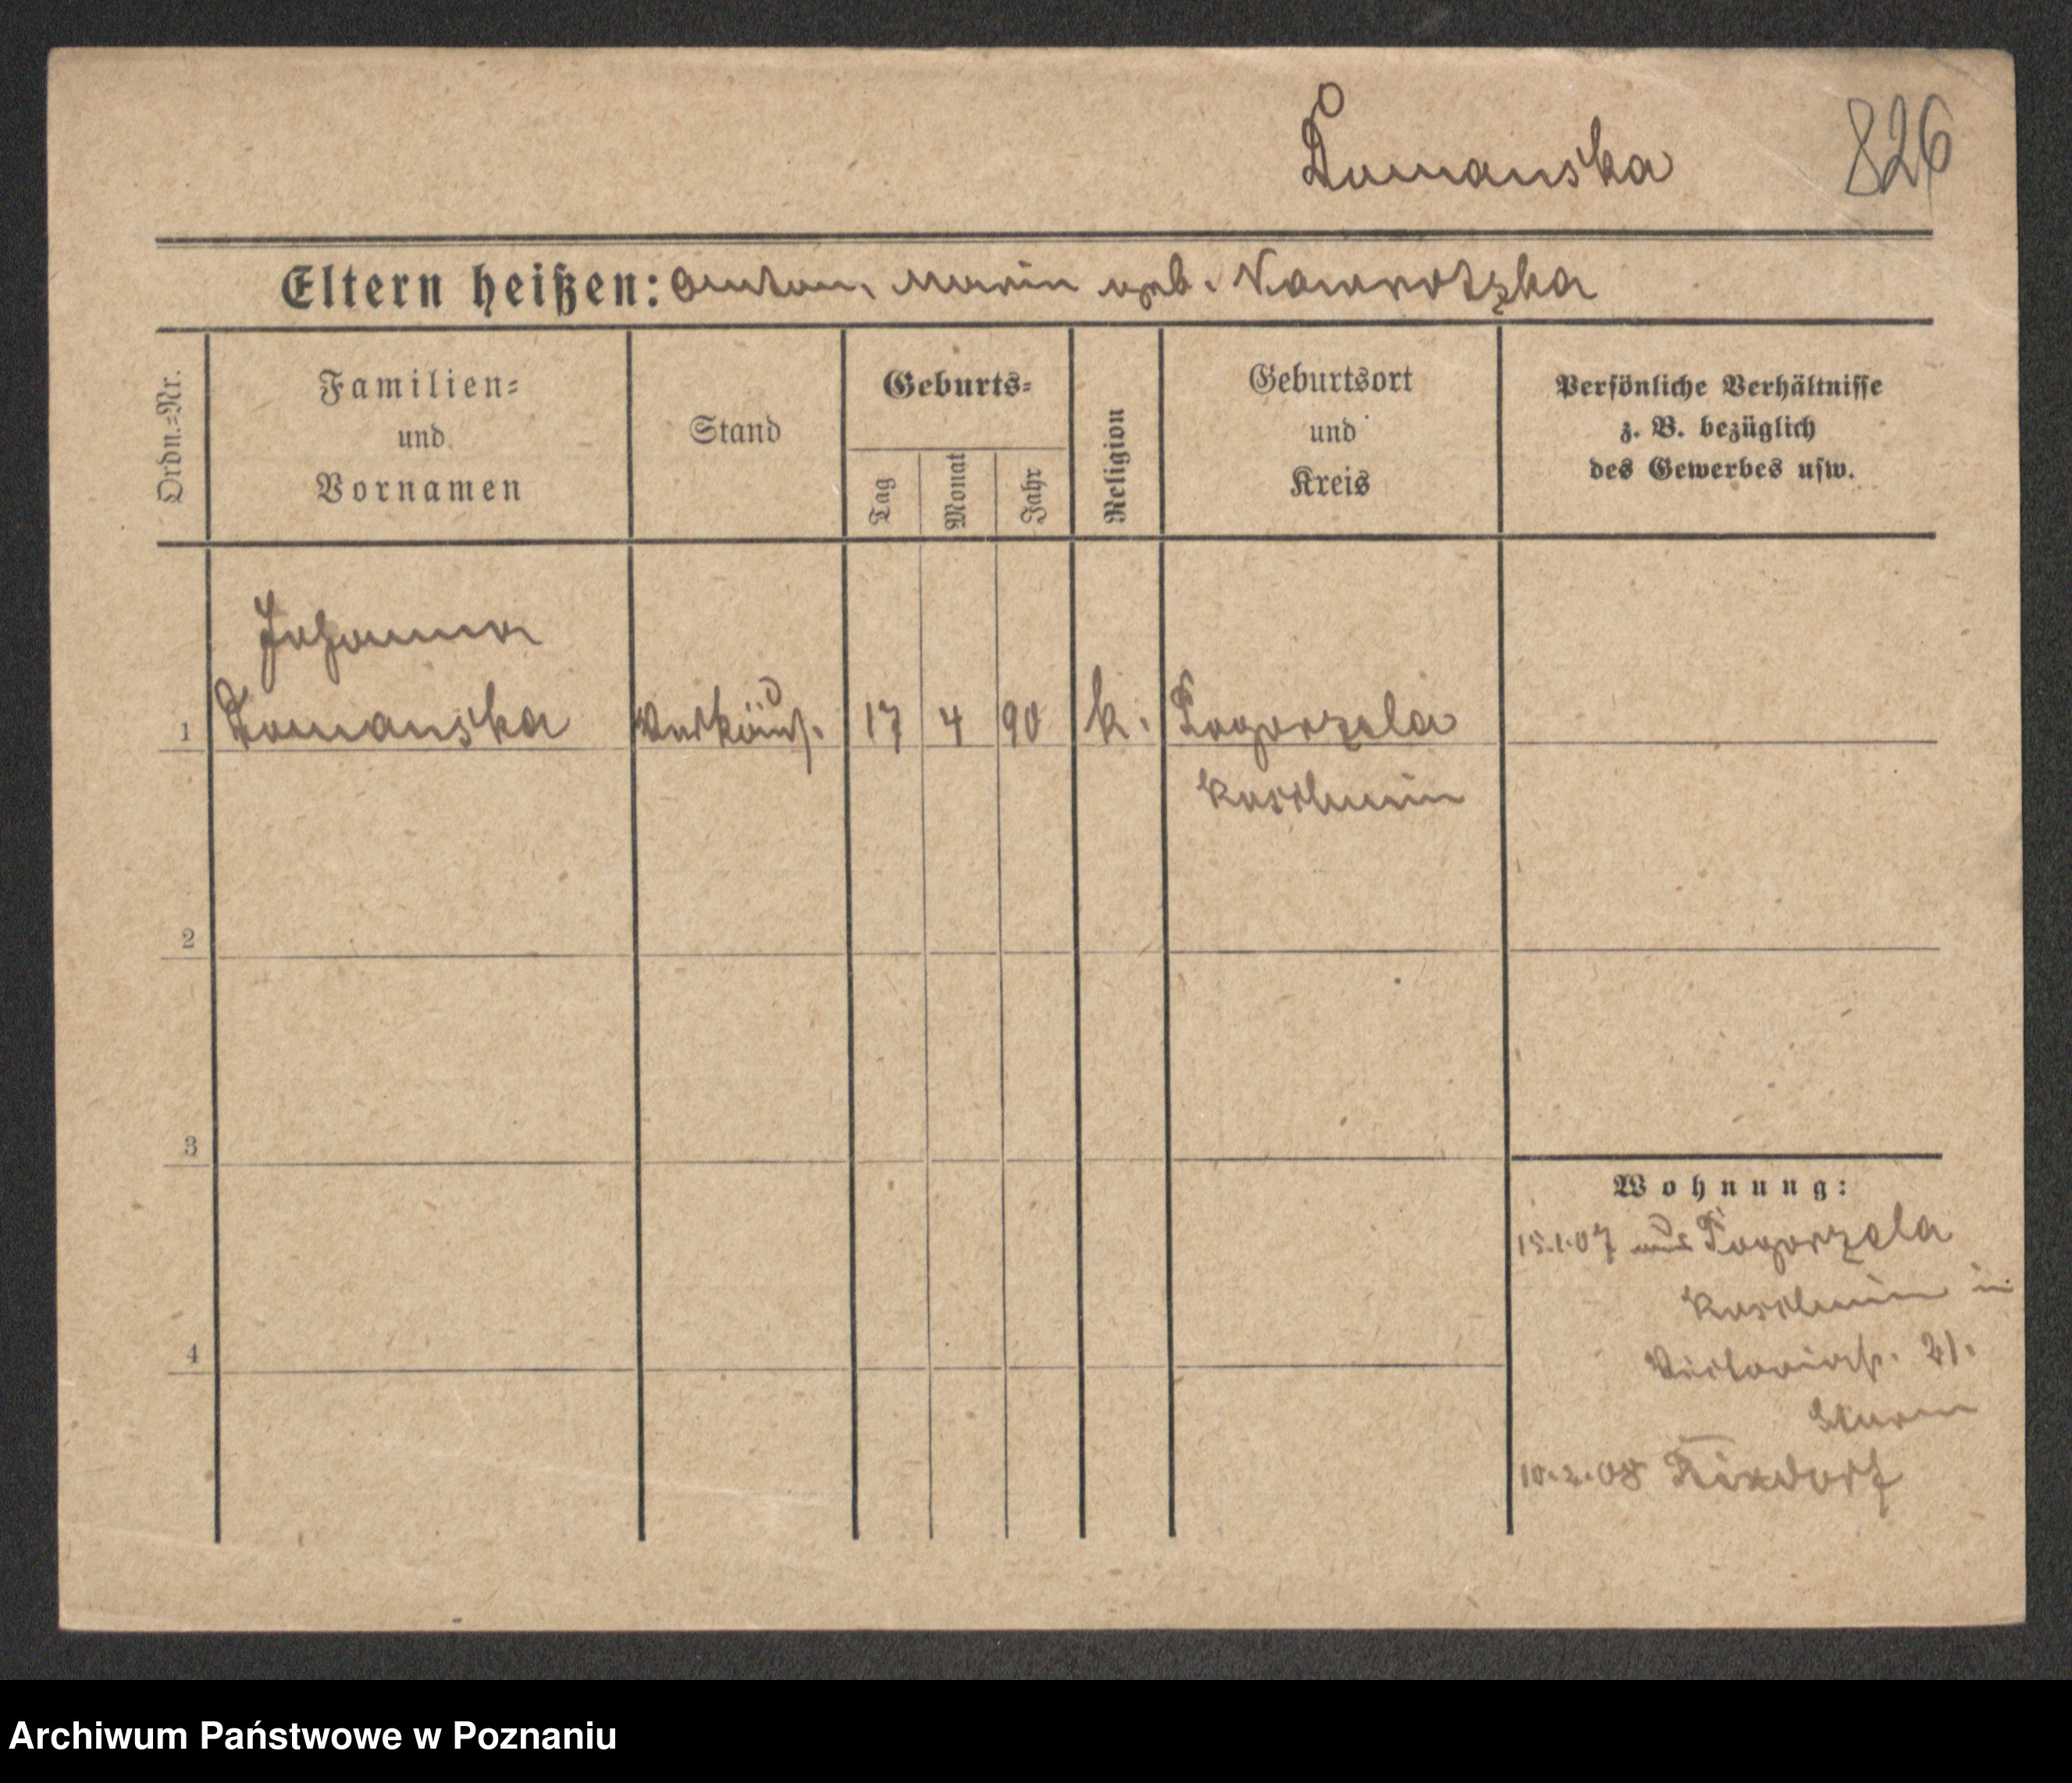 Domanska
826
Eltern heißen: Anton, Marie geb. Nawrotzka
Ordn.=Nr.
Familien=
und
Vornamen
Stand
Geburts=
Tag
Monat
Jahr
Religion
Geburtsort
und
Kreis
Persönliche Verhältnisse
z. B. bezüglich
des Gewerbes usw.
Johanna
1 Domanska Verkäuf. 17 4 90 k. Pogorzela
Koschmin
2
3
4
Wohnung:
15.1.07 aus Pogorzela
Koschmin in
Victoriastr. 21.
10.2.08 Rixdorf
Archiwum Państwowe w Poznaniu